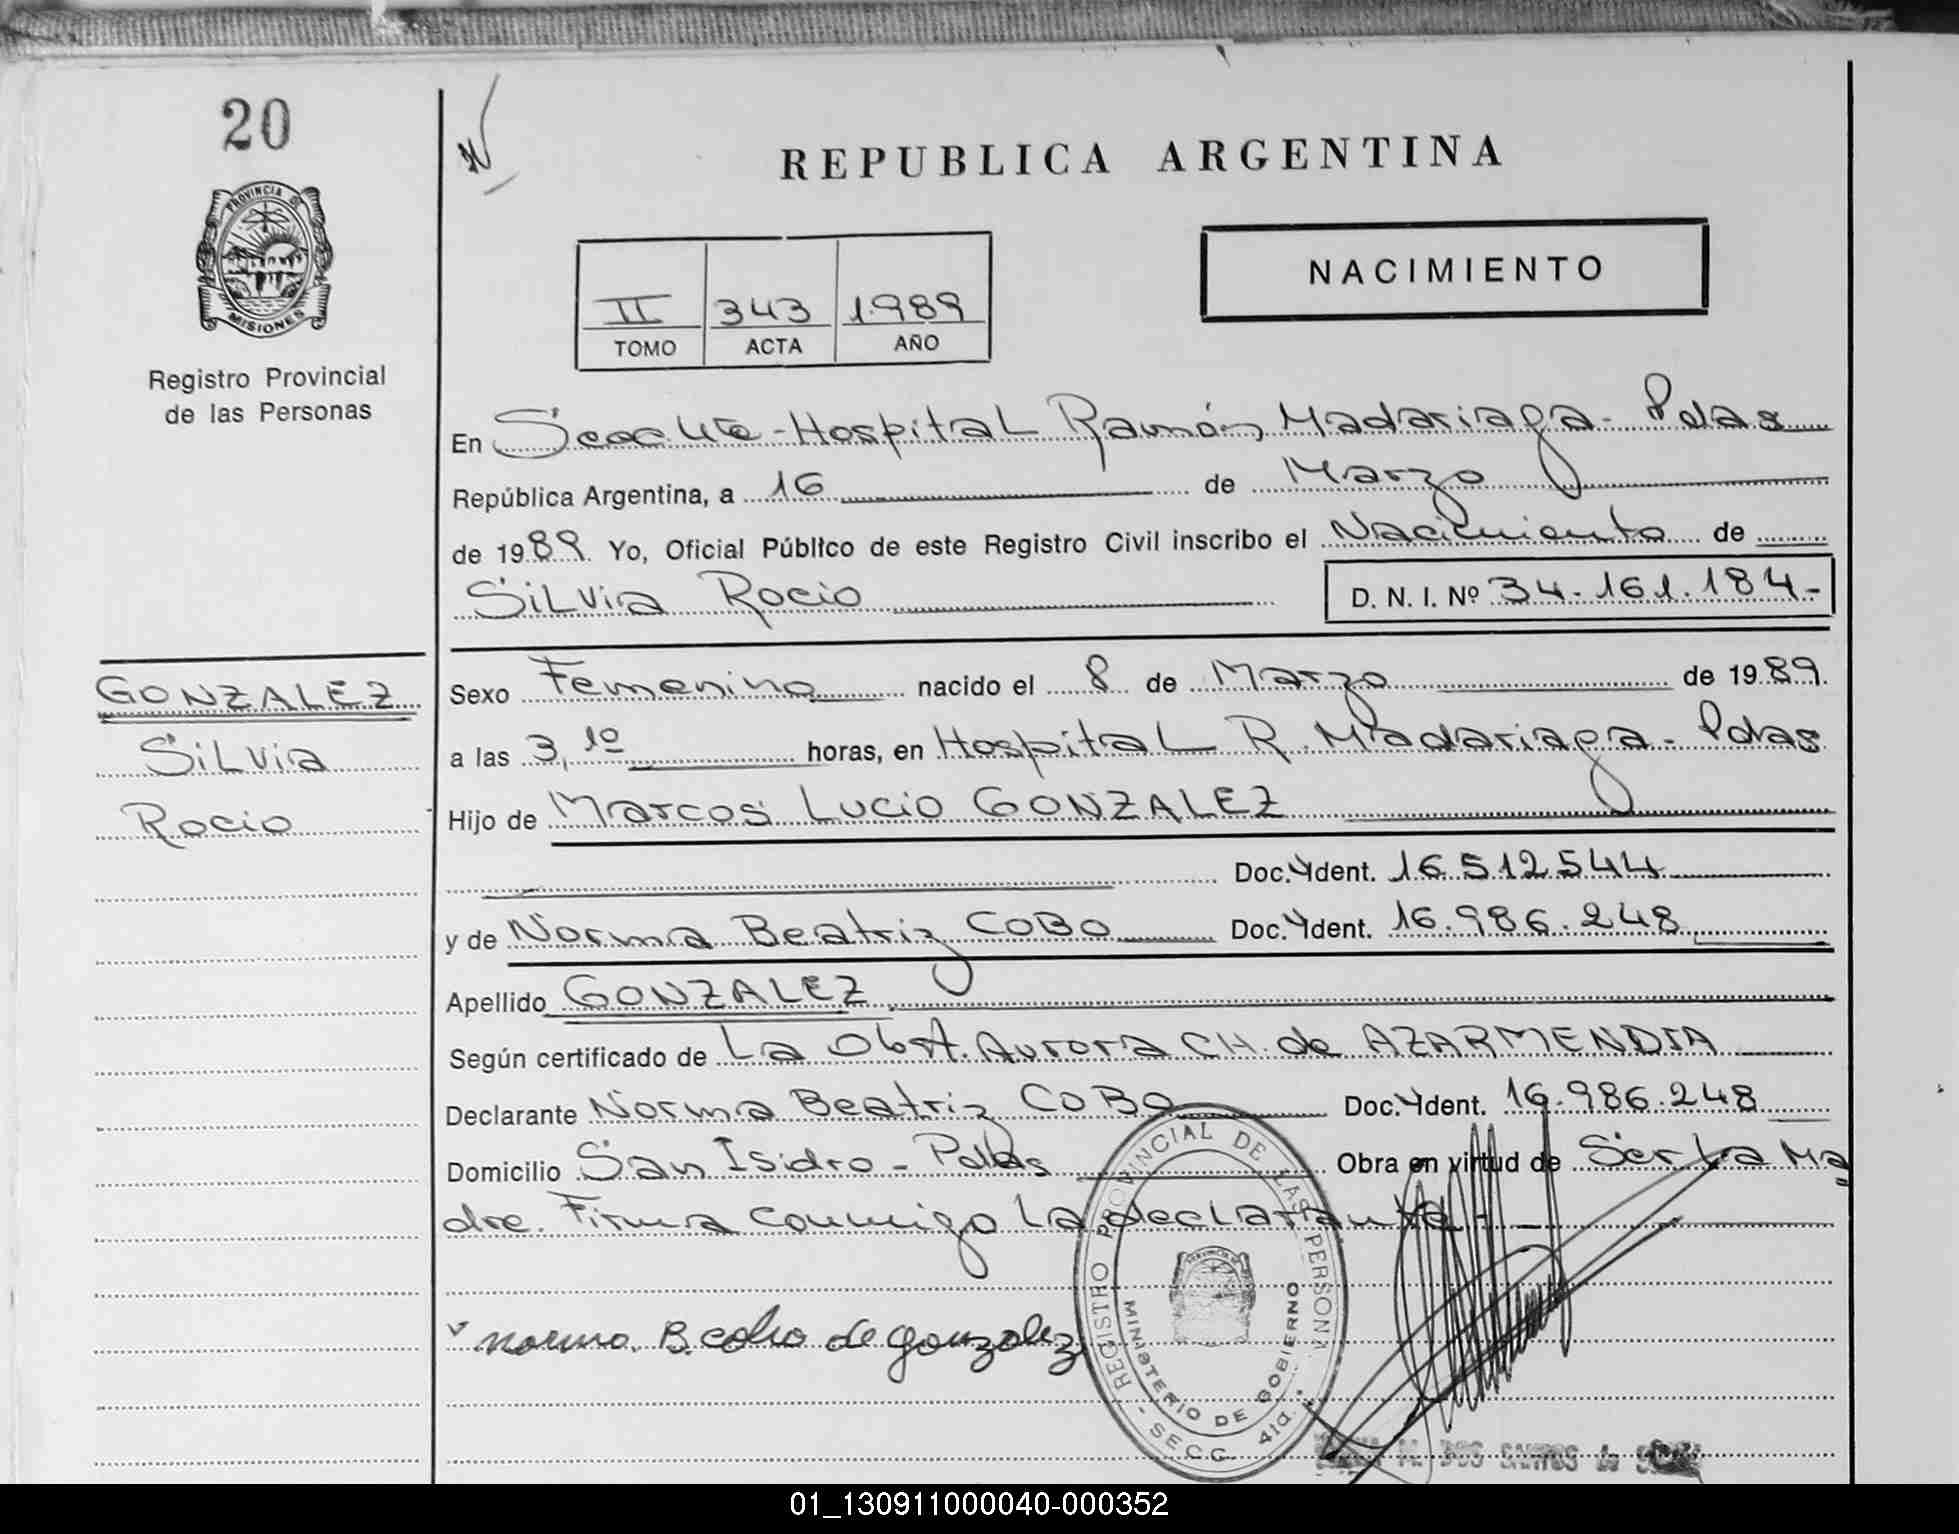 20
PROVINCIA DE
MISIONES
Registro Provincial
de las Personas
REPUBLICA ARGENTINA
NACIMIENTO
II 343 1989
TOMO ACTA AÑO
En Secc 4ta - Hospital Ramón Madariaga - Pdas
República Argentina, a 16 de Marzo
de 1989. Yo, Oficial Público de este Registro Civil inscribo el Nacimiento de
Silvia Rocio D. N. I. Nº 34.161.184-
GONZALEZ
Silvia
Rocio
Sexo Femenino nacido el 8 de Marzo de 1989.
a las 3,10 horas, en Hospital R. Madariaga - Pdas
Hijo de Marcos Lucio GONZALEZ
Doc. Ydent. 16.512.544
y de Norma Beatriz COBO Doc. Ydent. 16.986.248
Apellido GONZALEZ
Según certificado de La Obst. Aurora CH. de AZARMENDIA
Declarante Norma Beatriz COBO Doc. Ydent. 16.986.248
Domicilio San Isidro - Pdas Obra en virtud de Ser La Ma
dre. Firma conmigo La declarante -
norma. B. cobo de gonzalez
REGISTRO PROVINCIAL DE LAS PERSONAS
MINISTERIO DE GOBIERNO
- SECC. 4ta.
M. DOS SANTOS de
01_130911000040-000352